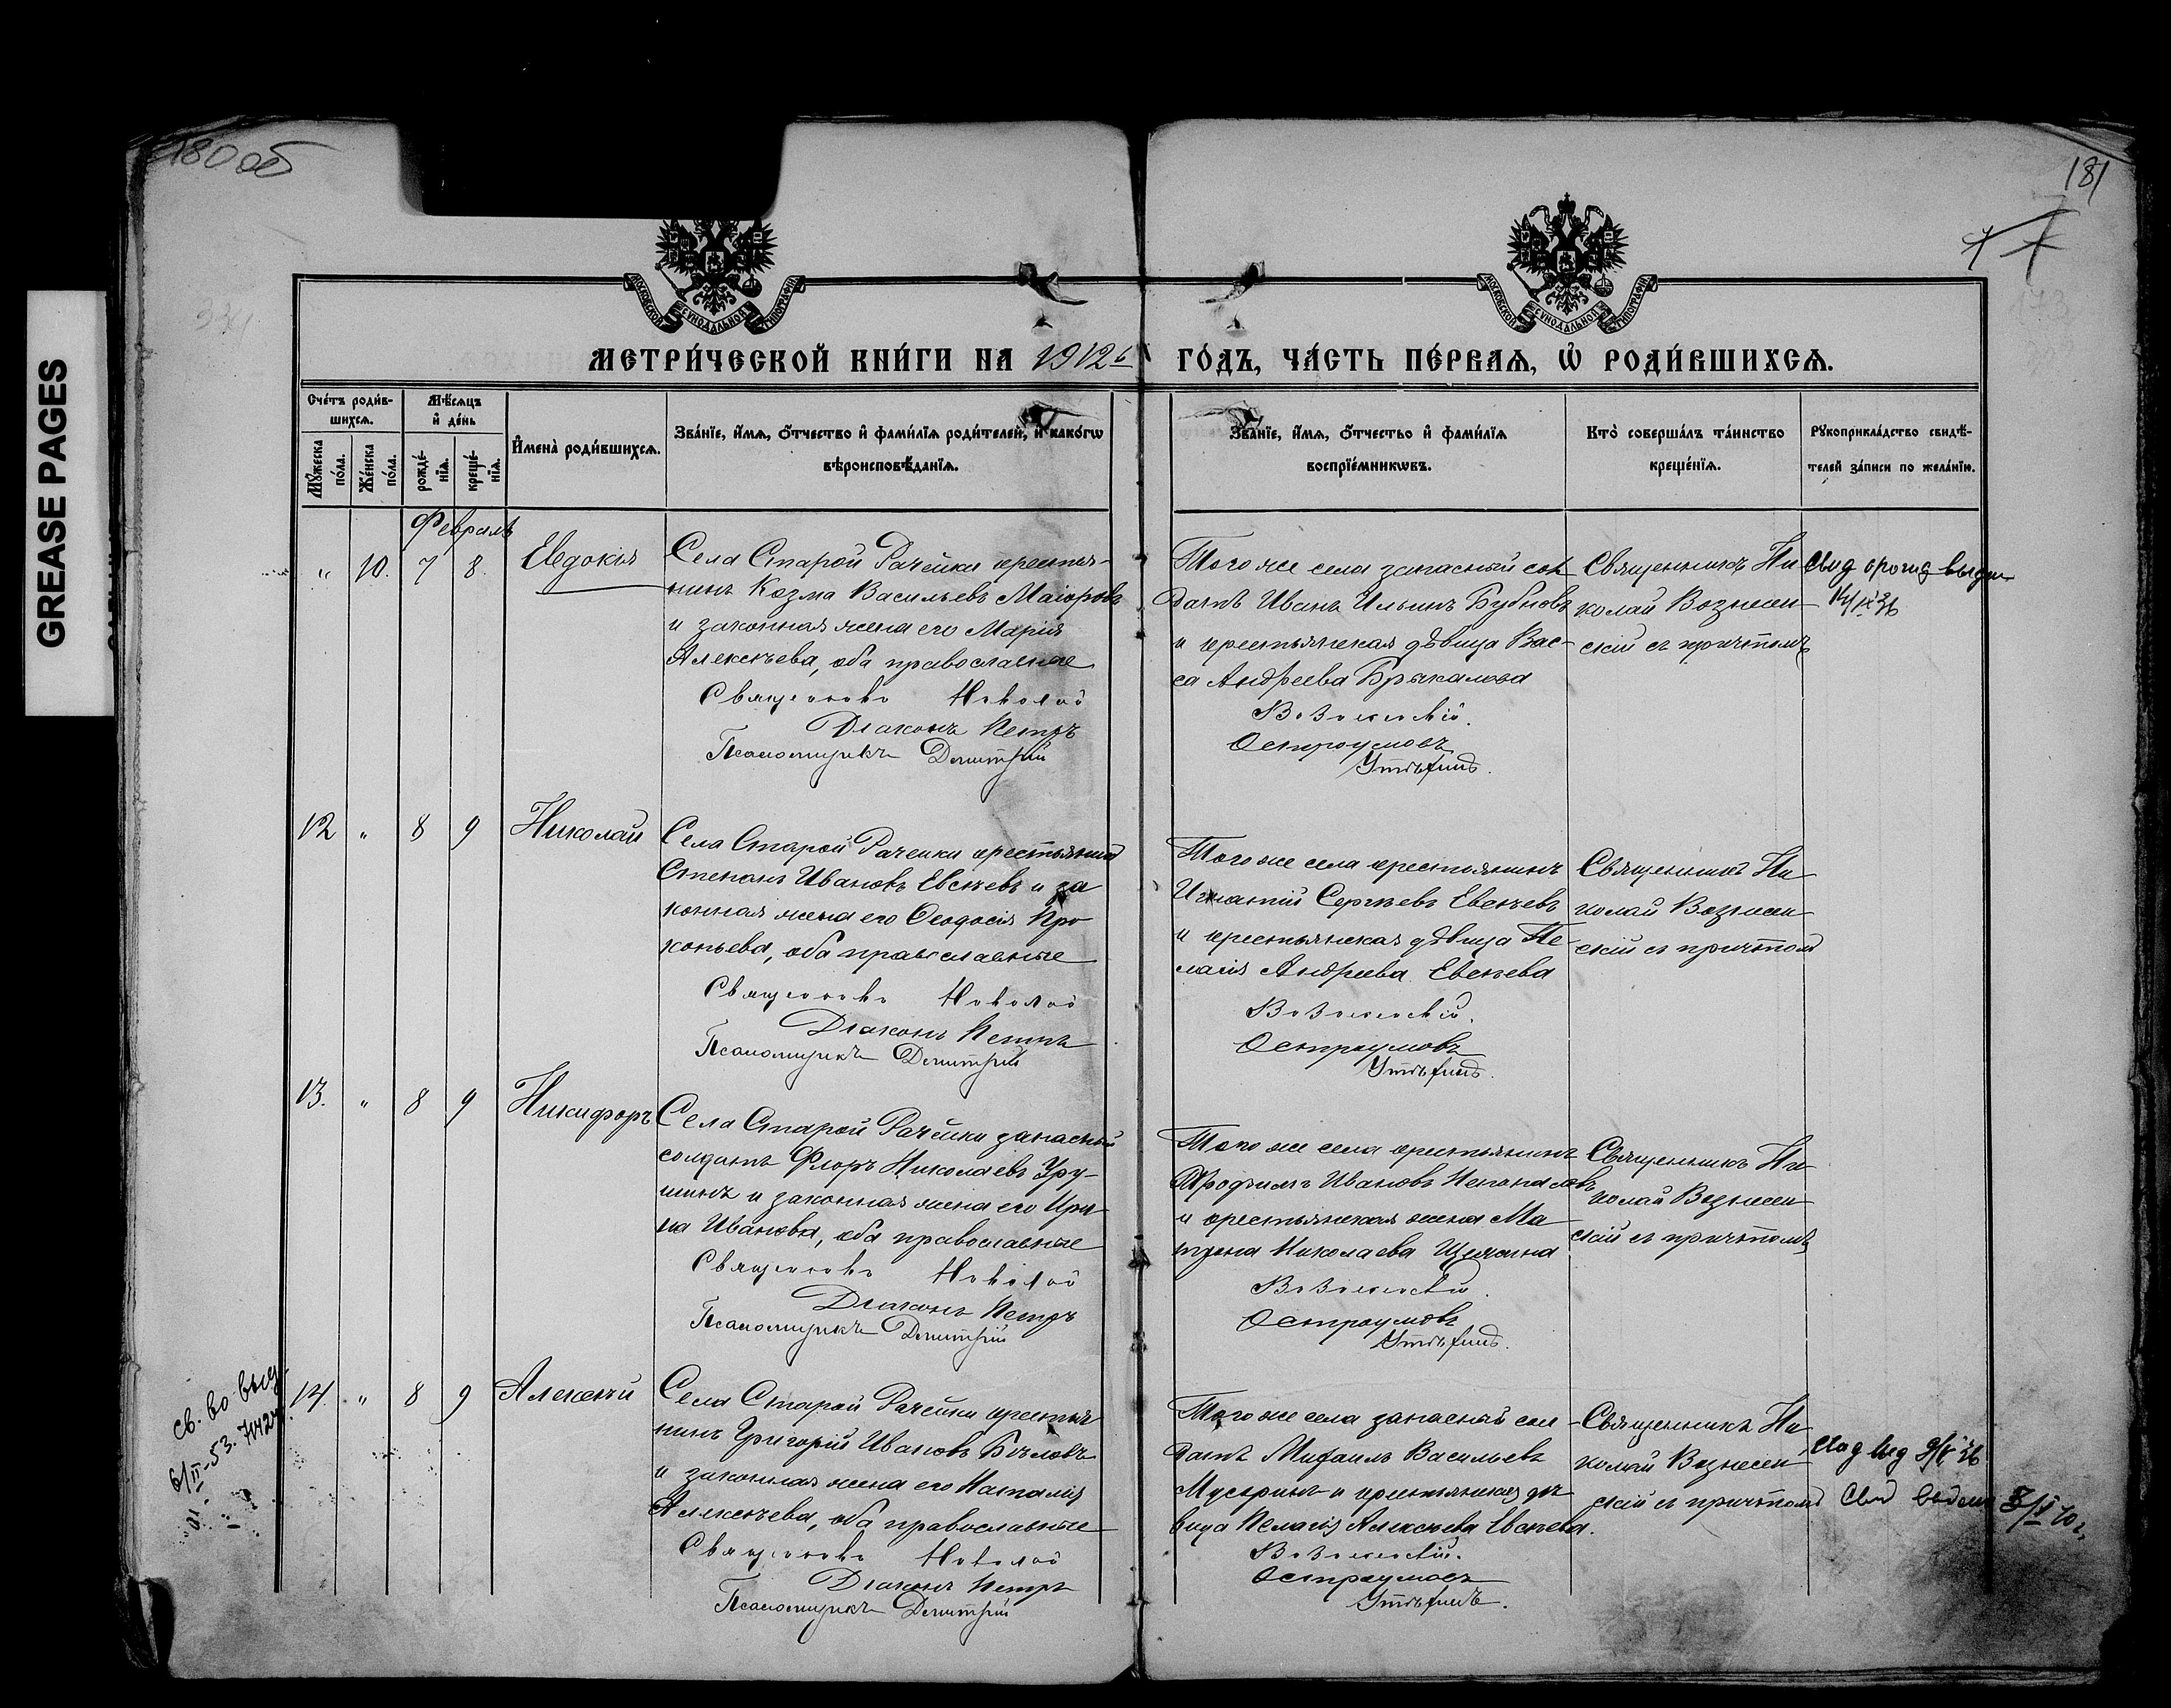 180 об
181
GREASE PAGES
МОСКОВСКОЙ СѴНОДАЛЬНОЙ ТИПОГРАФІИ
МОСКОВСКОЙ СѴНОДАЛЬНОЙ ТИПОГРАФІИ
МЕТРИ́ЧЕСКОЙ КНИ́ГИ НА 1912 ГО́ДЪ, ЧА́СТЬ ПЕ́РВАѦ, Ѡ҆ РОДИ́ВШИХСѦ.
Сче́тъ роди́в-
шихсѧ.
Мѣ́сѧцъ
и҆ де́нь
Мꙋ́жеска
по́ла.
Же́нска
по́ла.
рожде́-
нїѧ.
креще́-
нїѧ.
И҆мена̀ роди́вшихсѧ.
Зва́нїе, и҆́мѧ, ѻ҆́тчество и҆ фами́лїѧ роди́телей, и҆ како́гѡ
вѣроисповѣ́данїѧ.
Зва́нїе, и҆́мѧ, ѻ҆́тчество и҆ фами́лїѧ
воспрїе́мникѡвъ.
Кто̀ соверша́лъ та́инство
креще́нїѧ.
Рꙋкоприкла́дство свидѣ́-
телей за́писи по жела́нїю.
Февраль
" 10. 7 8. Евдокія
Села Старой Рачейки крестья-
нинъ Козма Васильевъ Маіоровъ
и законная жена его Марія
Алексѣева, оба православные
Священникъ Николай
Діаконъ Петръ
Псаломщикъ Димитрій
Того же села запасный сол
датъ Иванъ Ильинъ Бубновъ
и крестьянская дѣвица Вас-
са Андреева Брыкалова
Вознесенскій.
Остроумовъ
Утѣхинъ.
Священникъ Ни
колай Вознесен-
скій съ причтомъ
12 " 8 9 Николай
Села Старой Рачейки крестьянинъ
Степанъ Ивановъ Евсѣевъ и за
конная жена его Ѳеодосія Про
копьева, оба православные
Священникъ Николай
Діаконъ Петръ
Псаломщикъ Димитрій
Того же села крестьянинъ
Игнатій Сергѣевъ Евсѣевъ
и крестьянская дѣвица Пе-
лагія Андреева Евсѣева
Вознесенскій.
Остроумовъ
Утѣхинъ.
Священникъ Ни
колай Вознесен-
скій съ причтомъ
13. " 8 9 Никифоръ
Села Старой Рачейки запасный
солдатъ Флоръ Николаевъ Уру-
шинъ и законная жена его Ири-
на Иванова, оба православные
Священникъ Николай
Діаконъ Петръ
Псаломщикъ Димитрій
Того же села крестьянинъ
Трофимъ Ивановъ
и крестьянская жена Ма
трона Николаева
Вознесенскій.
Остроумовъ
Утѣхинъ.
Священникъ Ни
колай Вознесен-
скій съ причтомъ
св. во выд.
6/II-53.
14. " 8 9 Алексѣй
Села Старой Рачейки крестья
нинъ Григорій Ивановъ Бѣловъ
и законная жена его Наталія
Алексѣева, оба православные
Священникъ Николай
Діаконъ Петръ
Псаломщикъ Димитрій
Того же села запасный сол-
датъ Михаилъ Васильевъ
и крестьянская дѣ
вица Пелагія Алексѣева Евсѣева.
Вознесенскій.
Остроумовъ
Утѣхинъ.
Священникъ Ни
колай Вознесен-
скій съ причтомъ